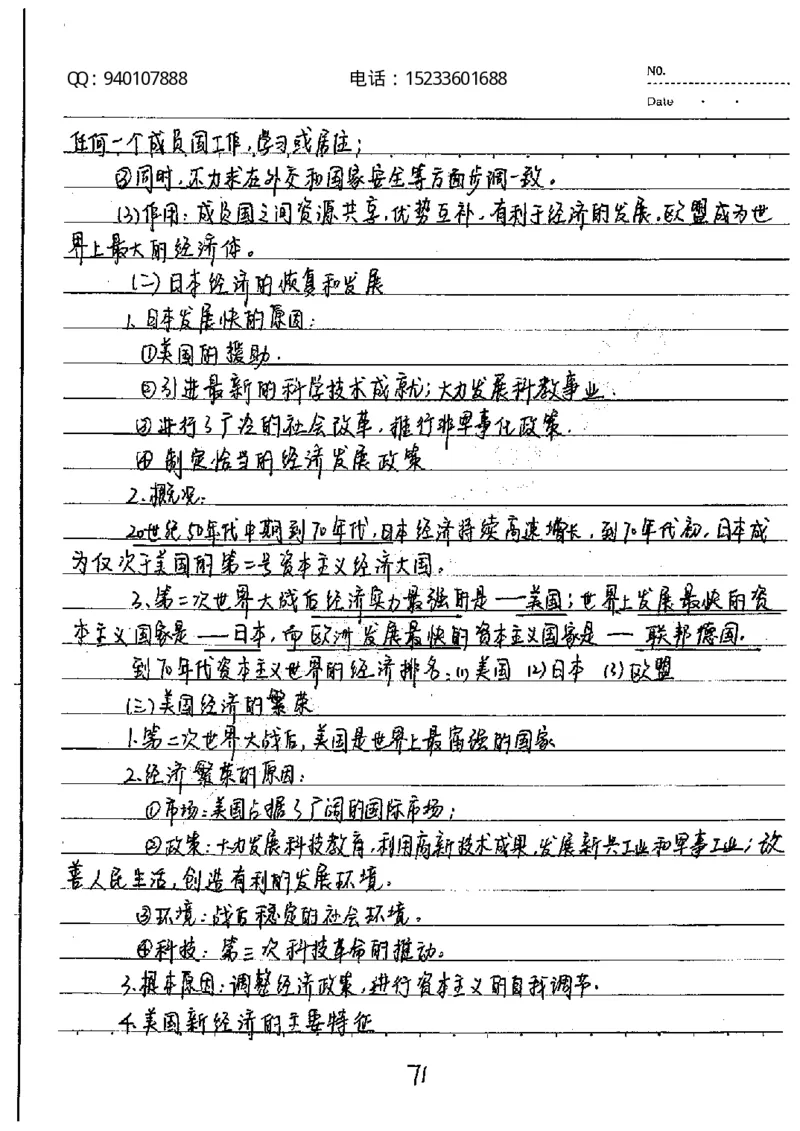 QQ：940107888 电话：15233601688 NO.
Date
任何一个成员国工作,学习或居住;
②同时,还力求在外交和国家安全等方面步调一致。
(3)作用:成员国之间资源共享,优势互补,有利于经济的发展,欧盟成为世
界上最大的经济体。
(二)日本经济的恢复和发展
1.日本发展快的原因:
①美国的援助.
②引进最新的科学技术成就;大力发展科教事业.
③进行了广泛的社会改革,推行非军事化政策.
④制定恰当的经济发展政策
2.概况:
20世纪50年代中期到70年代,日本经济持续高速增长,到70年代初,日本成
为仅次于美国的第二号资本主义经济大国。
3.第二次世界大战后经济实力最强的是——美国;世界上发展最快的资
本主义国家是——日本,而欧洲发展最快的资本主义国家是——联邦德国.
到70年代资本主义世界的经济排名:(1)美国 (2)日本 (3)欧盟
(三)美国经济的繁荣
1.第二次世界大战后,美国是世界上最富强的国家
2.经济繁荣的原因:
①市场:美国占据了广阔的国际市场;
②政策:大力发展科技教育,利用高新技术成果,发展新兴工业和军事工业;改
善人民生活,创造有利的发展环境.
③环境:战后稳定的社会环境。
④科技:第三次科技革命的推动。
3.根本原因:调整经济政策,进行资本主义的自我调节.
4.美国新经济的主要特征
71